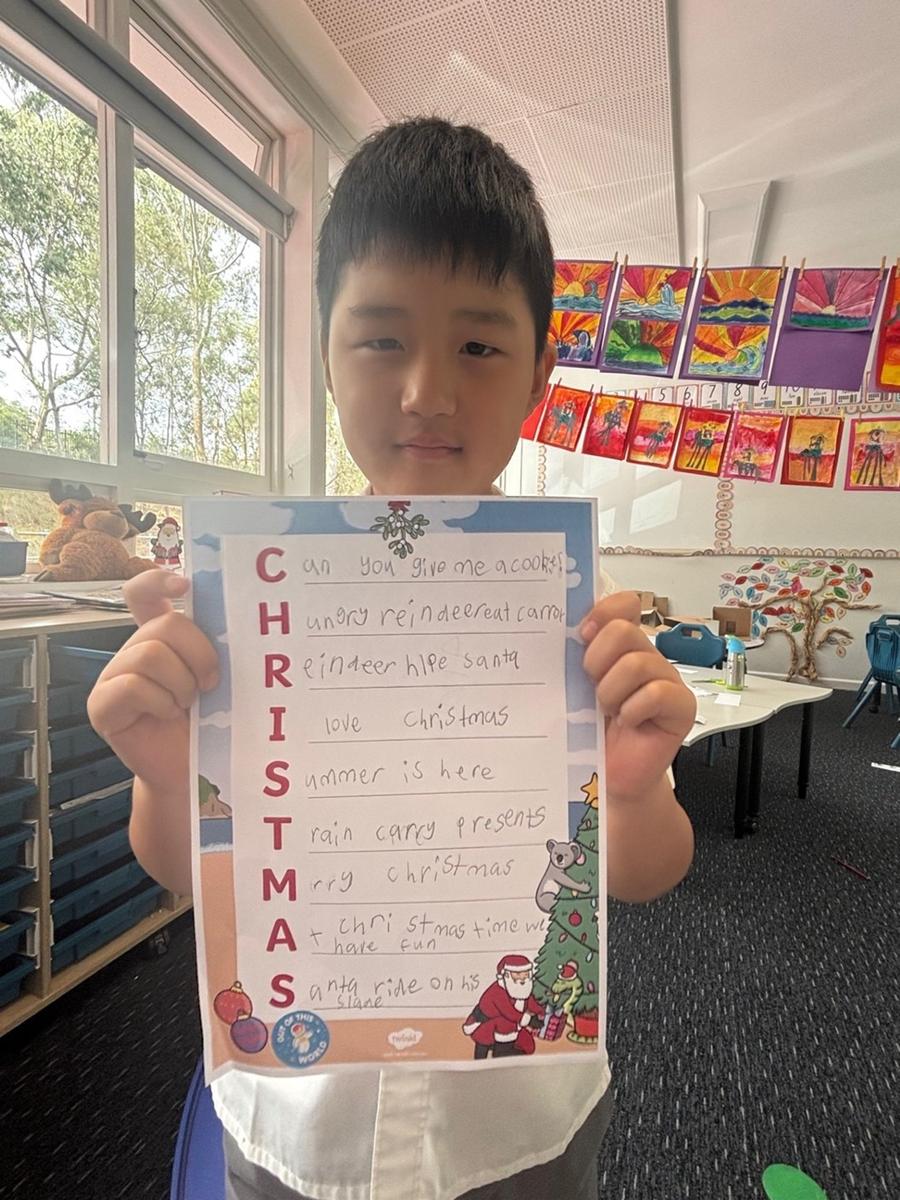 Can you give me a cookie
Hungry reindeer eat carrot
Reindeer hlpe santa
I love christmas
Summer is here
Train carry presents
Mrry christmas
At christmas time we
have fun
Santa ride on his
slane
OUT OF THIS
WORLD
twinkl
5 6 7 8 9